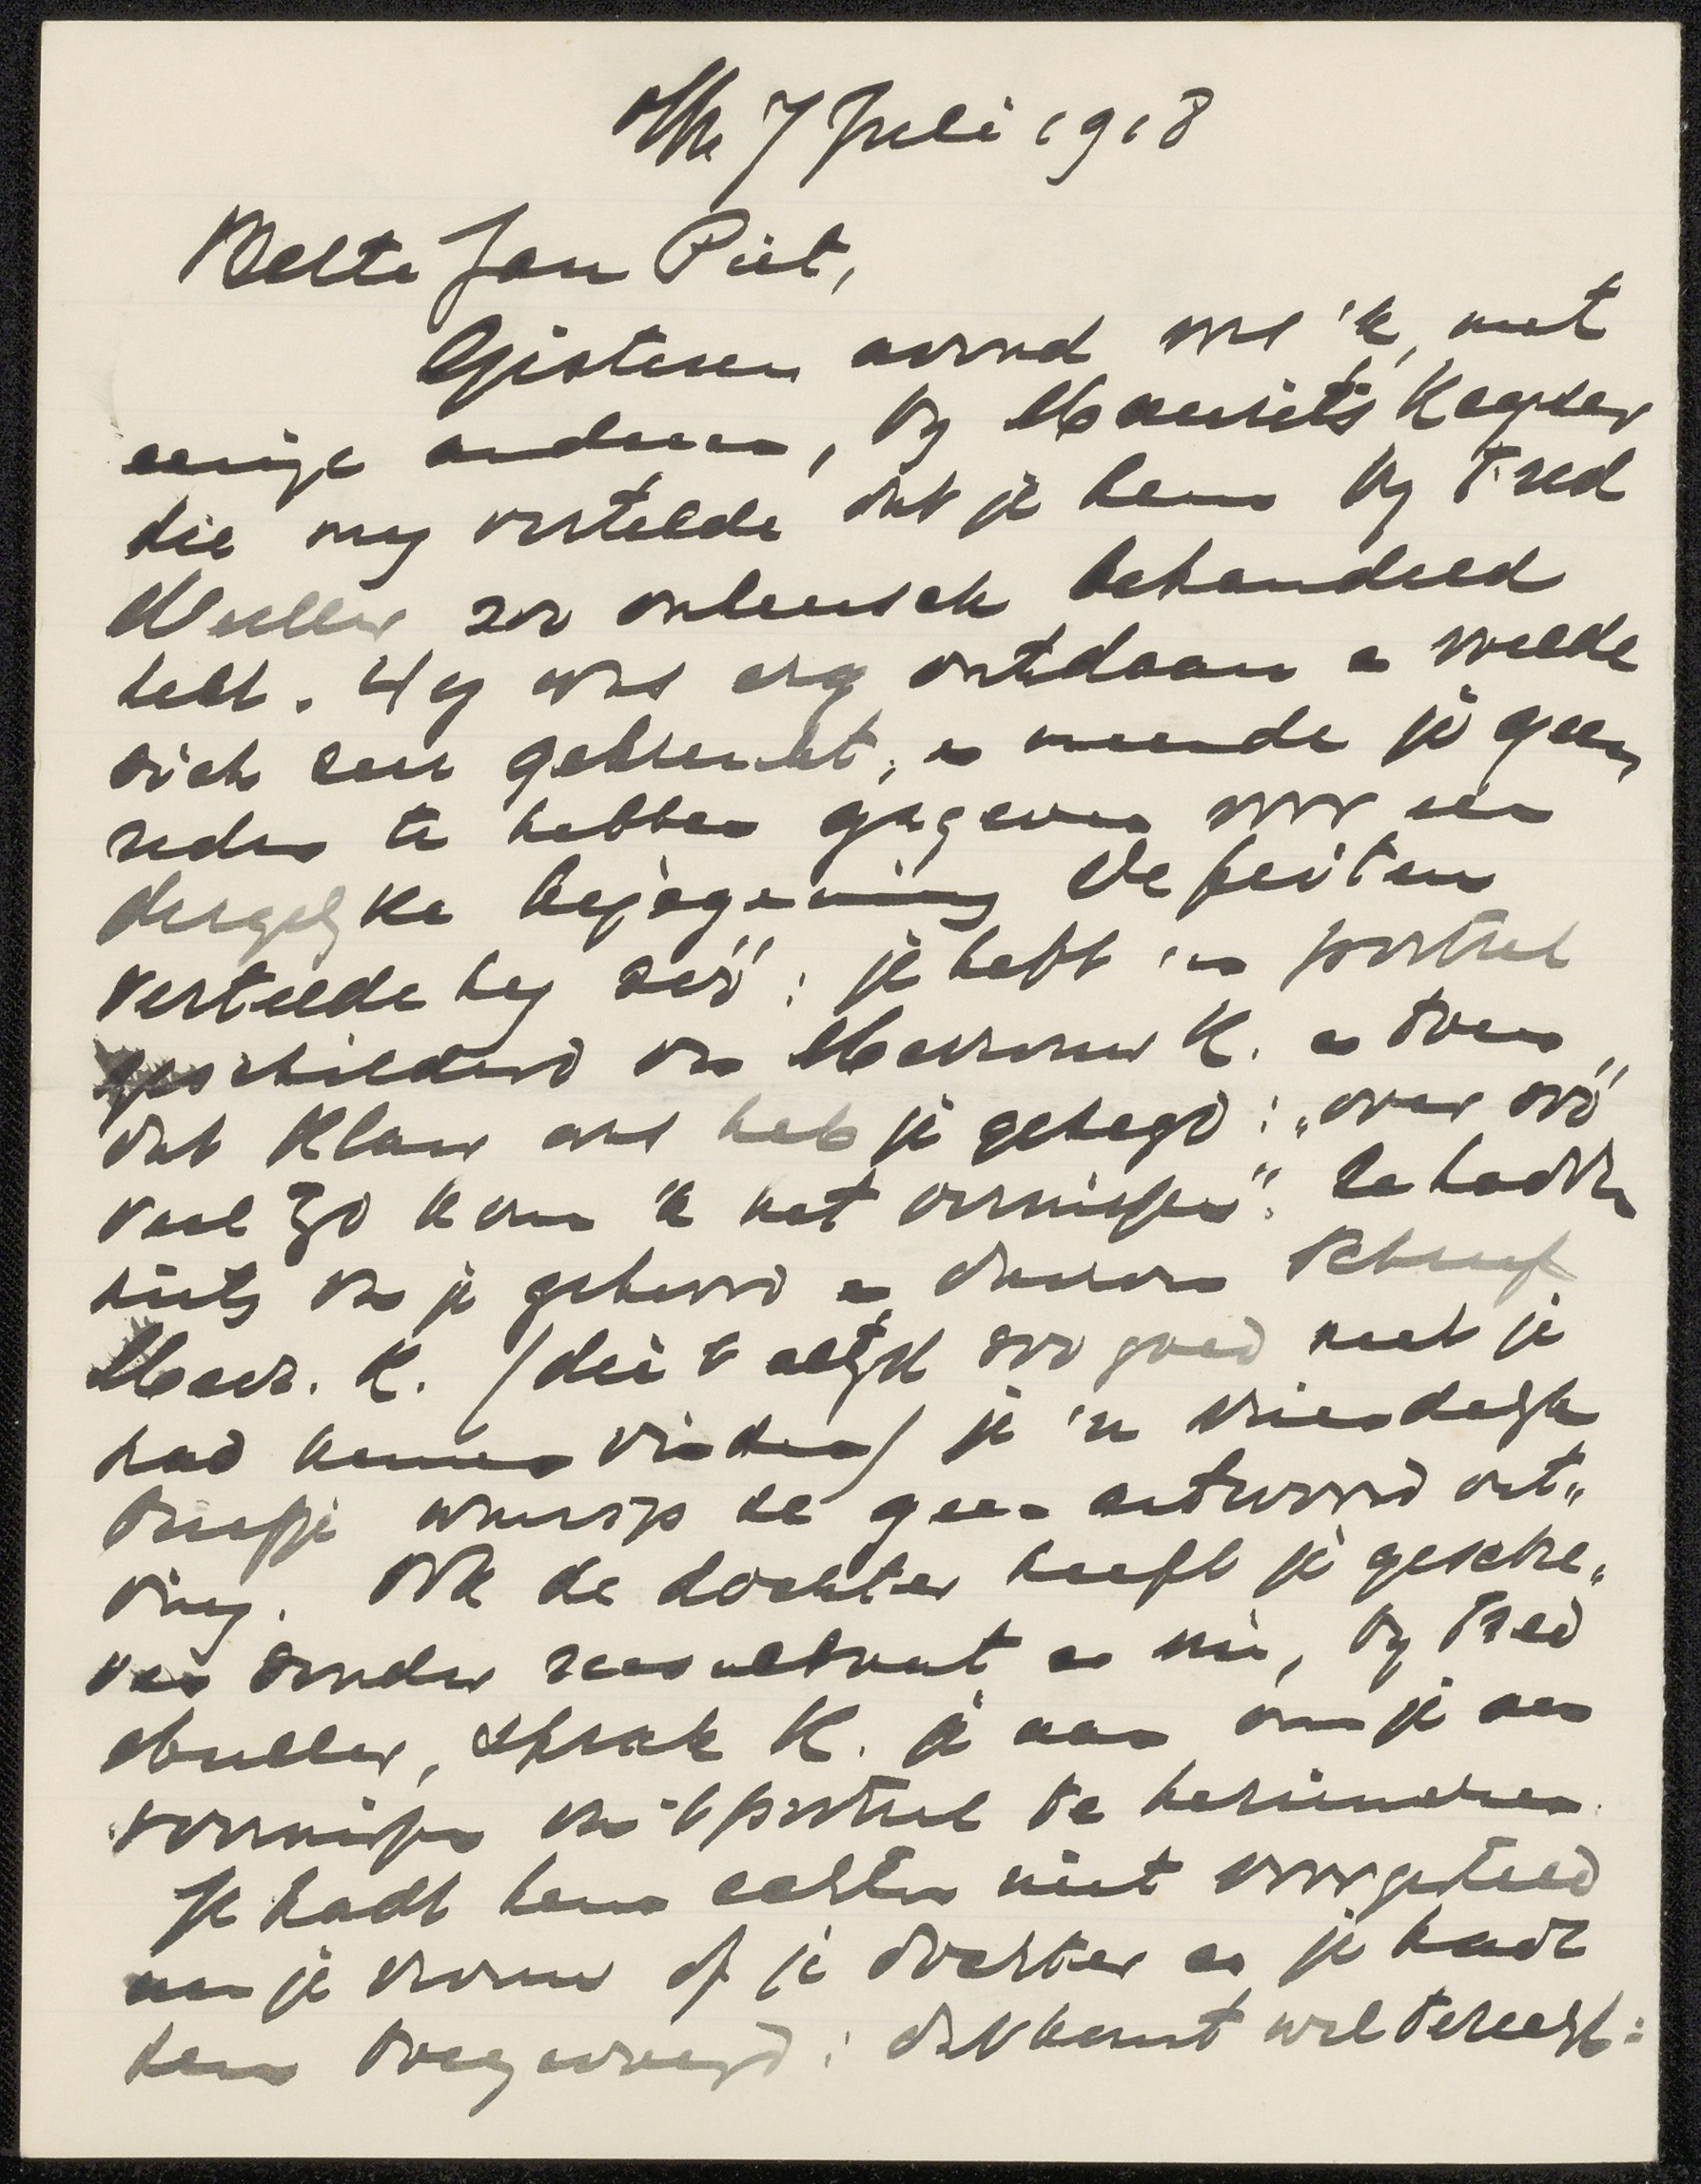 7 Juli 1918
Beste Jan Piet,
Gisteren avond was 'k, met
eenige anderen, by Maurits Keyser
die my vertelde dat je hem by Fred
Muller zoo onheusch behandeld
hebt. Hy was erg ontdaan en voelde
zich zeer gekrenkt, en meende je geen
reden te hebben gegeven voor een
dergelyke bejegening De feiten
vertelde hy zóó: je hebt 'n portret
geschilderd van Mevrouw K. en toen
dat klaar was heb je gezegd: "over zóó
veel tyd kom ik het vernissen". Ze hadden
niets van je gehoord en daarom schreef
Mevr. K. (die 't altyd zoo goed met je
had kunnen vinden) je 'n vriendelyk
briefje waarop ze geen antwoord ont"
ving. Ook de dochter heeft je geschre"
ven zonder resultaat en nu, by Fred
Muller, sprak K. je aan om je aan
vernissen van 't portret te herinneren.
Je hadt hem echter niet voorgesteld
aan je vrouw of je dochter en je hadt
hem toegevoegd: dat komt wel terecht: